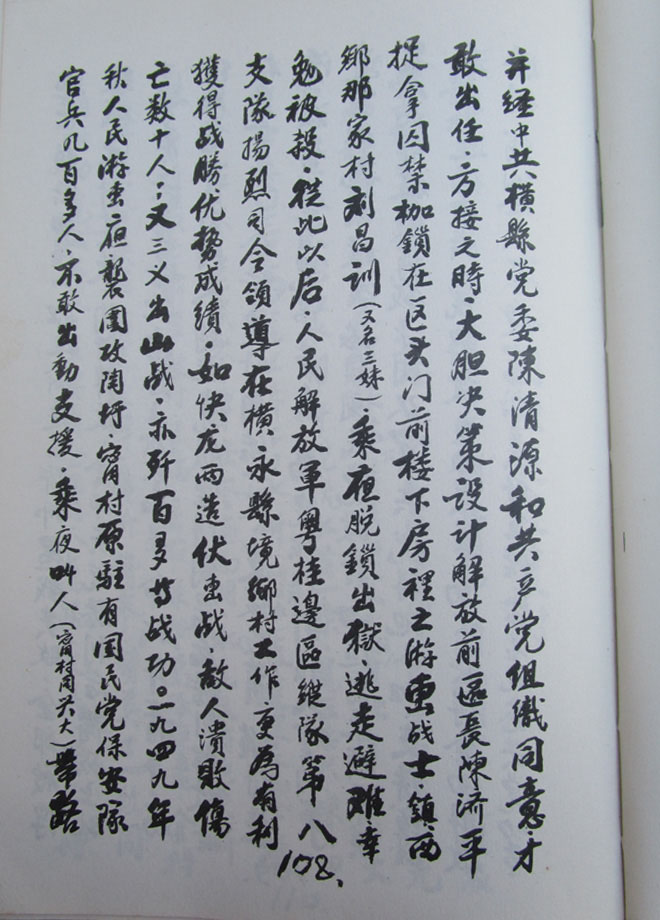 并经中共横縣党委陳清源和共产党组織同意才
敢出任.方接之時.大胆决策设计解放前區長陳济平
捉拿囚禁枷鎖在区头门前楼下房裡之游击战士.鎮西
鄉那家村刘昌訓(又名三妹).乘夜脱鎖出獄.逃走避难幸
勉被殺.從此以后.人民解放軍粤桂邊區縱隊第八
支隊揚烈司令領導在横永縣境鄉村工作更為有利
獲得战勝优勢成績.如快龙两造伏击战.敌人潰敗傷
亡数十人:又三义出山战.亦歼百多敌战功。一九四九年
秋人民游击夜襲圍攻陶圩.甯村原駐有国民党保安隊
官兵九百多人.不敢出動支援.乘夜叫人(甯村大)帶路
108、